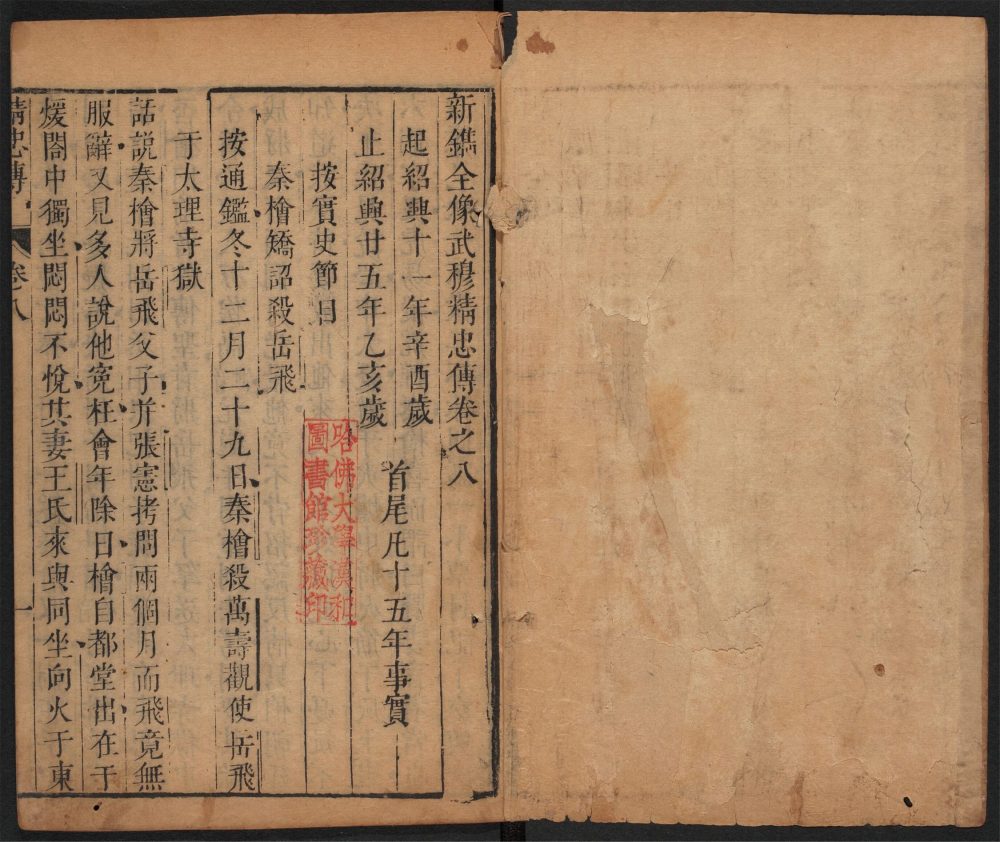 新鐫全像武穆精忠傳卷之八
起紹興十一年辛酉歲
止紹興廿五年乙亥歲
首尾凡十五年事實
按實史節目
秦檜矯詔殺岳飛
按通鑑冬十二月二十九日秦檜殺萬壽觀使岳飛
于太理寺獄
話說秦檜將岳飛父子并張憲拷問兩個月而飛竟無
服辭又見多人說他寃枉會年除日檜自都堂出在于
煖閣中獨坐悶悶不悅其妻王氏來與同坐向火于東
精忠傳
卷八
一
哈佛大學漢和
圖書館珍藏印